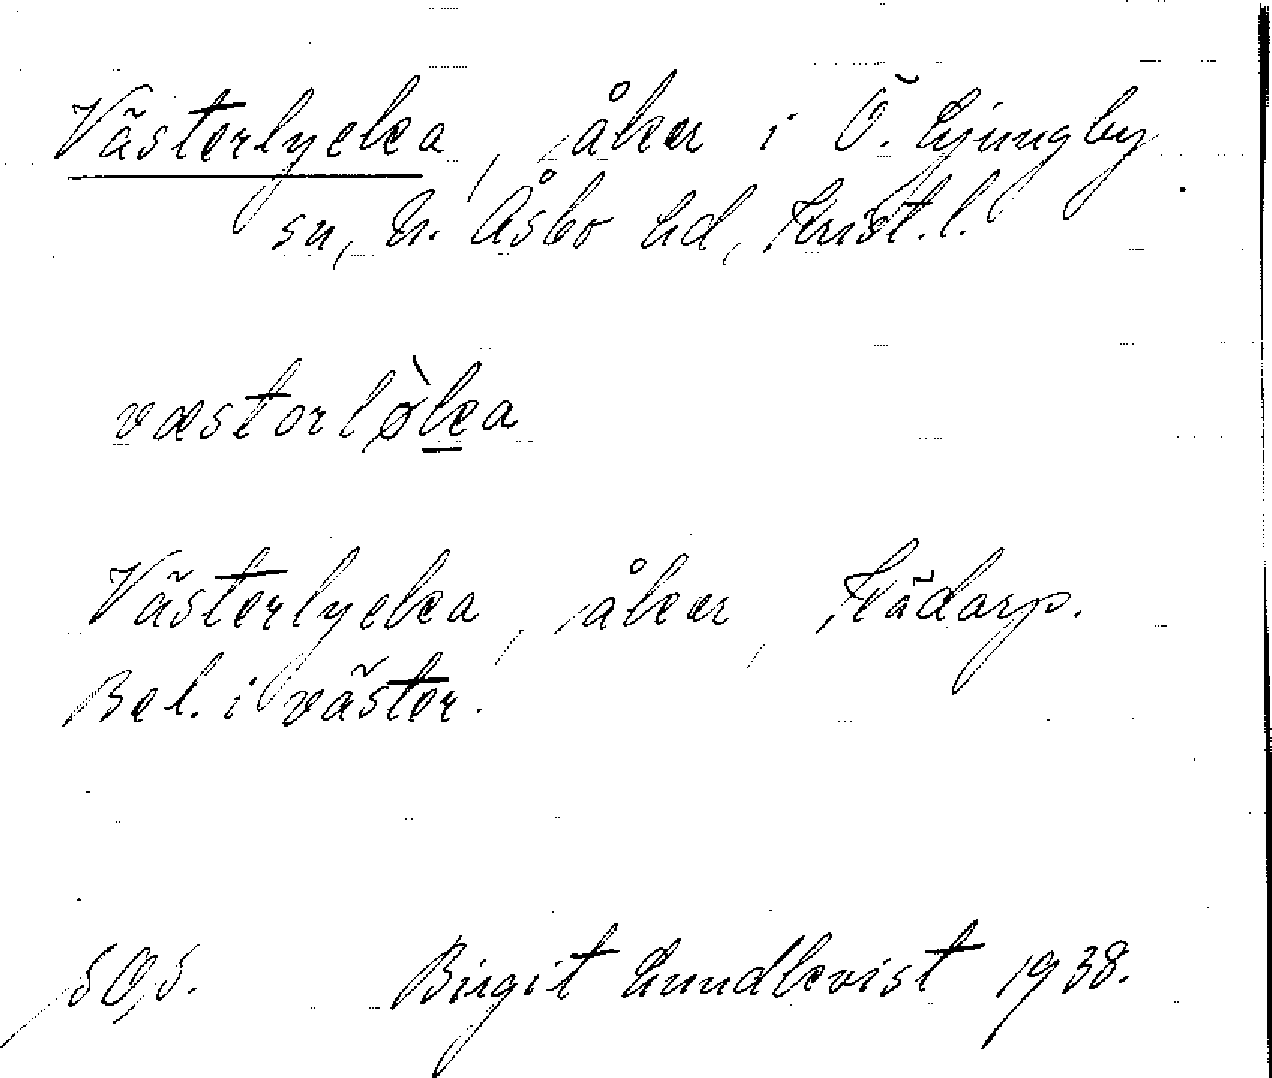 Västerlycka, åker i Ö. Ljungby
sn, N. Åsbo hd, Krist. l.
væstorlø̀ka
Västerlycka, åker, Kädarp.
Bel. i väster.
Birgit Lundkvist 1938.